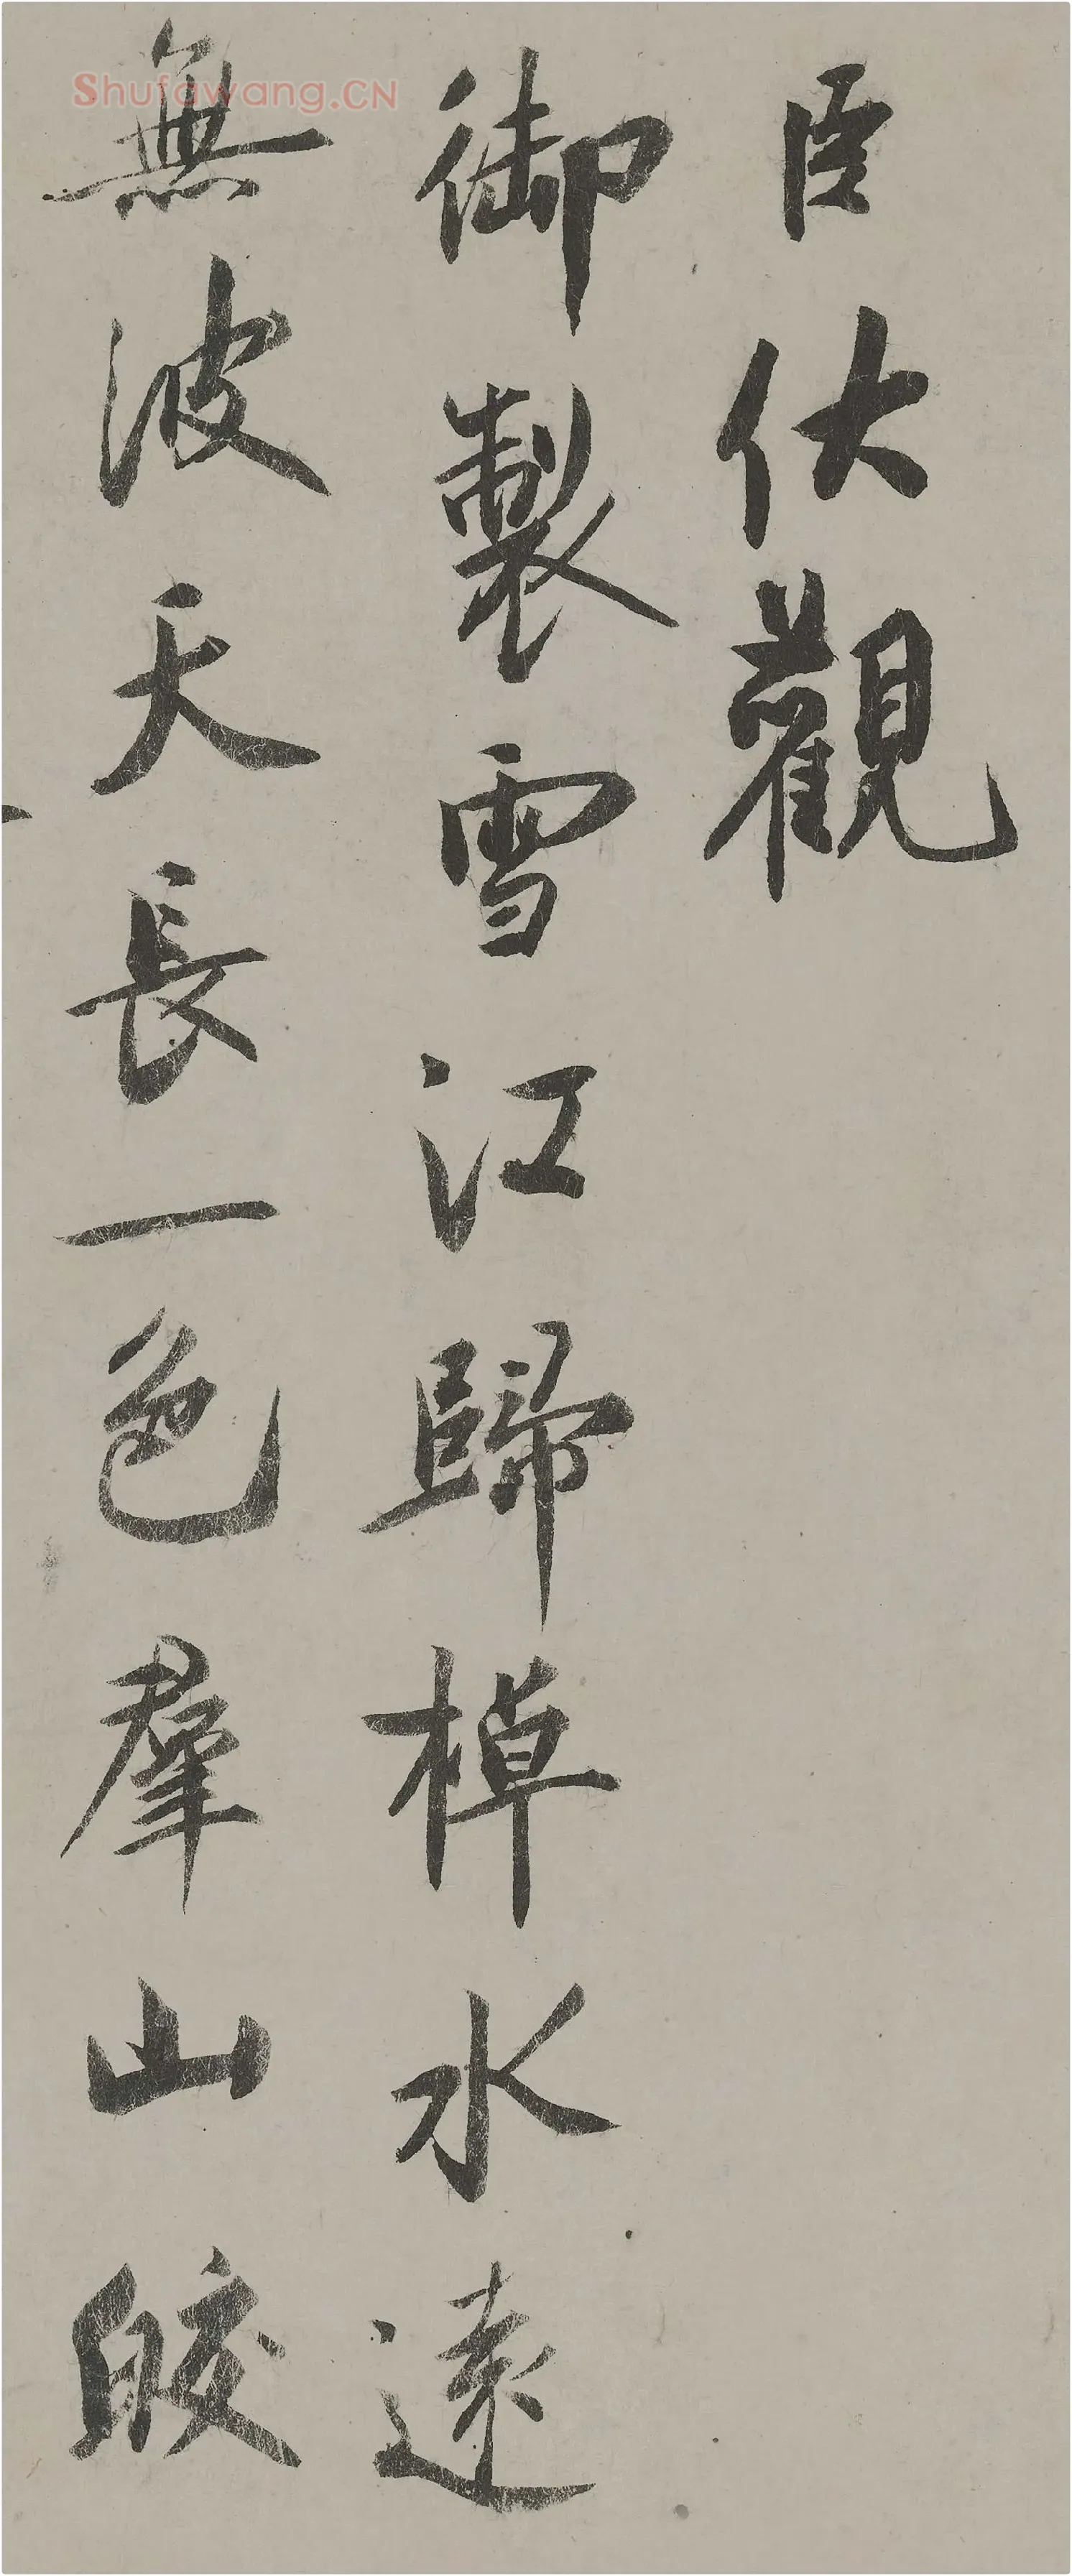 臣伏觀
御製雪江歸棹水遠
無波天長一色羣山皎
Shufawang.CN